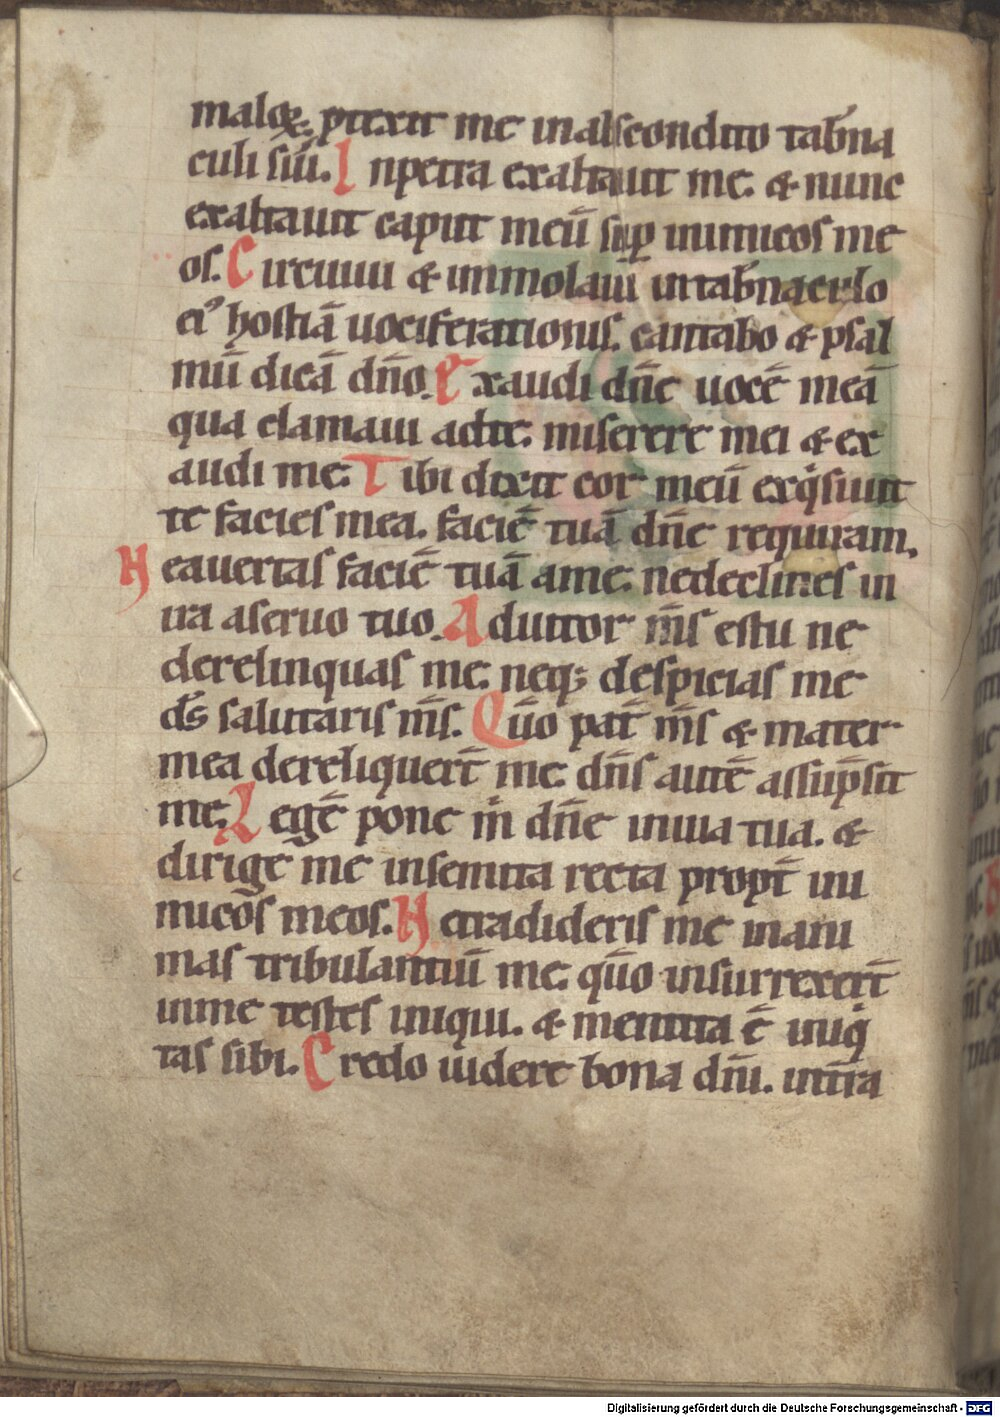 maloꝝ. ꝓtexit me inabscondito tab̄na
culi sui. Inpetra exaltauit me. & nunc
exaltauit caput meū suꝑ inimicos me
os. Circuiui & immolaui intab̄naculo
ei᷒ hostiā uociferationis. cantabo & psal
mū dicā dn̄o. Exaudi dn̄e uocē meā
qua clamaui adte. miserere mei & ex
audi me. Tibi dixit cor meū exq̇siuit
te facies mea. faciē tuā dn̄e requiram.
Ne auertas faciē tuā ame. nedeclines in
ira aseruo tuo. Adiutor m̄s estu ne
derelinquas me. neq; despicias me
ds̄ salutaris m̄s. Qūo pat̄ m̄s & mater
mea dereliquert̄ me. dn̄s autē assūpsit
me. Legē pone ṁ dn̄e inuia tua. &
dirige me insemita recta propt̄ ini
micos meos. Ne tradideris me inani
mas tribulantiū me. qūo insurrexert̄
inme testes iniqui. & mentita ē iniq̇
tas sibi. Credo uidere bona dn̄i. int̄ra
Digitalisierung gefördert durch die Deutsche Forschungsgemeinschaft - DFG